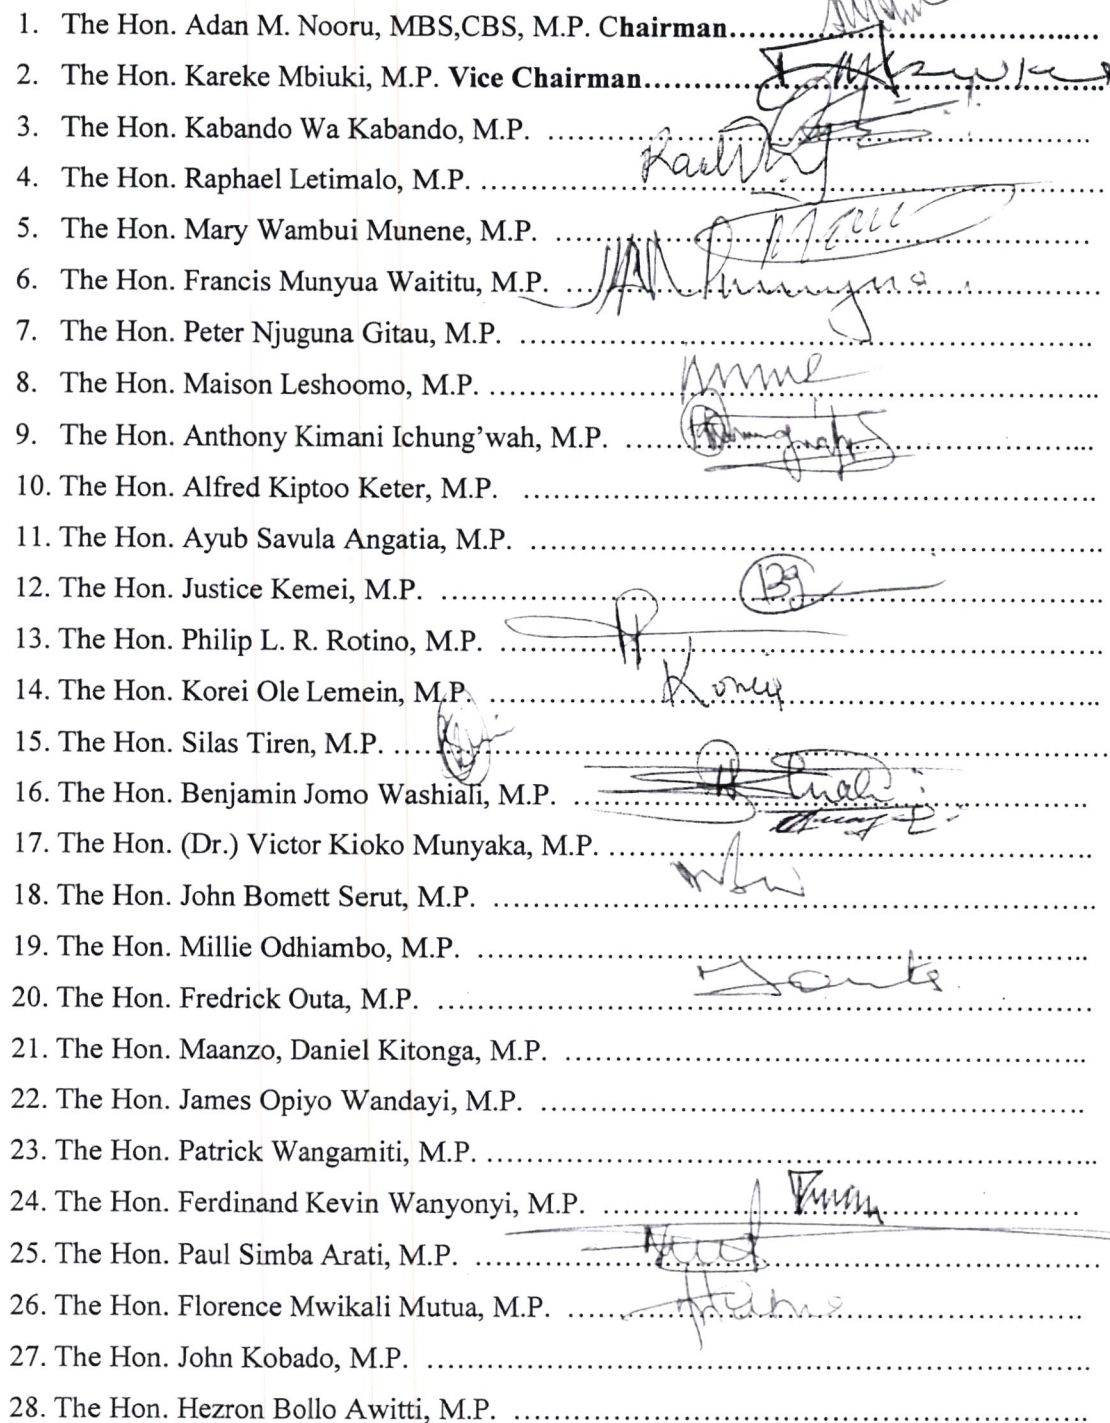 1. The Hon. Adan M. Nooru, MBS,CBS, M.P. Chairman...............................................
2. The Hon. Kareke Mbiuki, M.P. Vice Chairman.........................................................
3. The Hon. Kabando Wa Kabando, M.P. ..................................................................
4. The Hon. Raphael Letimalo, M.P. ...........................................................................
5. The Hon. Mary Wambui Munene, M.P. .................................................................
6. The Hon. Francis Munyua Waititu, M.P. ................................................................
7. The Hon. Peter Njuguna Gitau, M.P. ......................................................................
8. The Hon. Maison Leshoomo, M.P. ..........................................................................
9. The Hon. Anthony Kimani Ichung'wah, M.P. .........................................................
10. The Hon. Alfred Kiptoo Keter, M.P. .....................................................................
11. The Hon. Ayub Savula Angatia, M.P. ....................................................................
12. The Hon. Justice Kemei, M.P. ...............................................................................
13. The Hon. Philip L. R. Rotino, M.P. ........................................................................
14. The Hon. Korei Ole Lemein, M.P. .........................................................................
15. The Hon. Silas Tiren, M.P. .....................................................................................
16. The Hon. Benjamin Jomo Washiali, M.P. ..............................................................
17. The Hon. (Dr.) Victor Kioko Munyaka, M.P. ..........................................................
18. The Hon. John Bomett Serut, M.P. ........................................................................
19. The Hon. Millie Odhiambo, M.P. ..........................................................................
20. The Hon. Fredrick Outa, M.P. ...............................................................................
21. The Hon. Maanzo, Daniel Kitonga, M.P. ...............................................................
22. The Hon. James Opiyo Wandayi, M.P. ..................................................................
23. The Hon. Patrick Wangamiti, M.P. .........................................................................
24. The Hon. Ferdinand Kevin Wanyonyi, M.P. .........................................................
25. The Hon. Paul Simba Arati, M.P. ..........................................................................
26. The Hon. Florence Mwikali Mutua, M.P. ..............................................................
27. The Hon. John Kobado, M.P. ................................................................................
28. The Hon. Hezron Bollo Awitti, M.P. .....................................................................